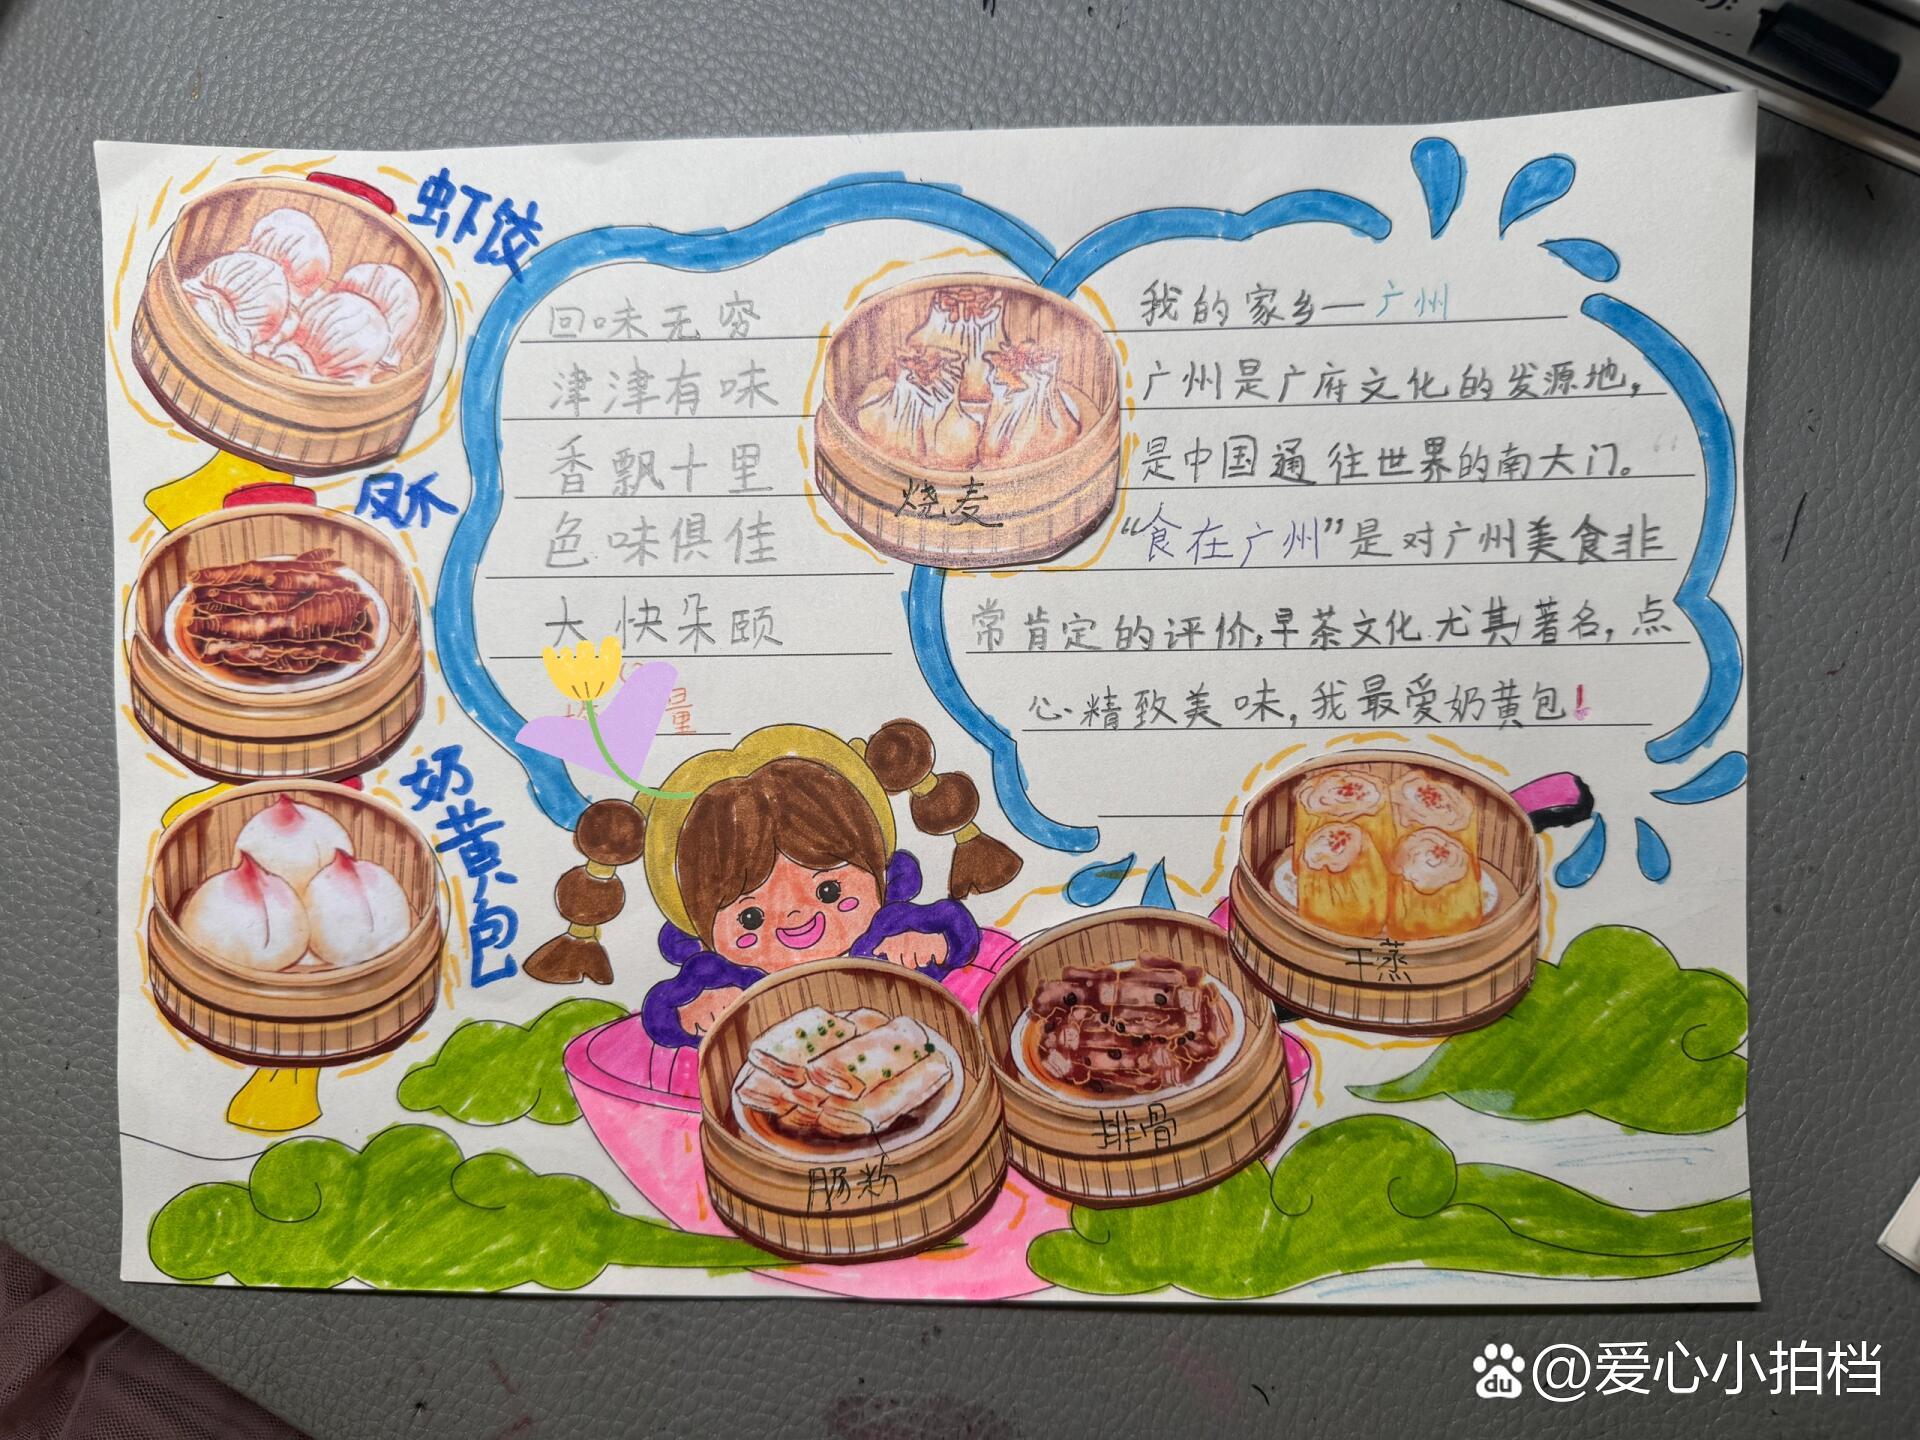 虾饺
凤爪
奶黄包
回味无穷
津津有味
香飘十里
色味俱佳
大快朵颐
量
烧麦
我的家乡—广州
广州是广府文化的发源地，
是中国通往世界的南大门。
“食在广州”是对广州美食非
常肯定的评价，早茶文化尤其著名，点
心精致美味，我最爱奶黄包！
干蒸
排骨
肠粉
du @爱心小拍档